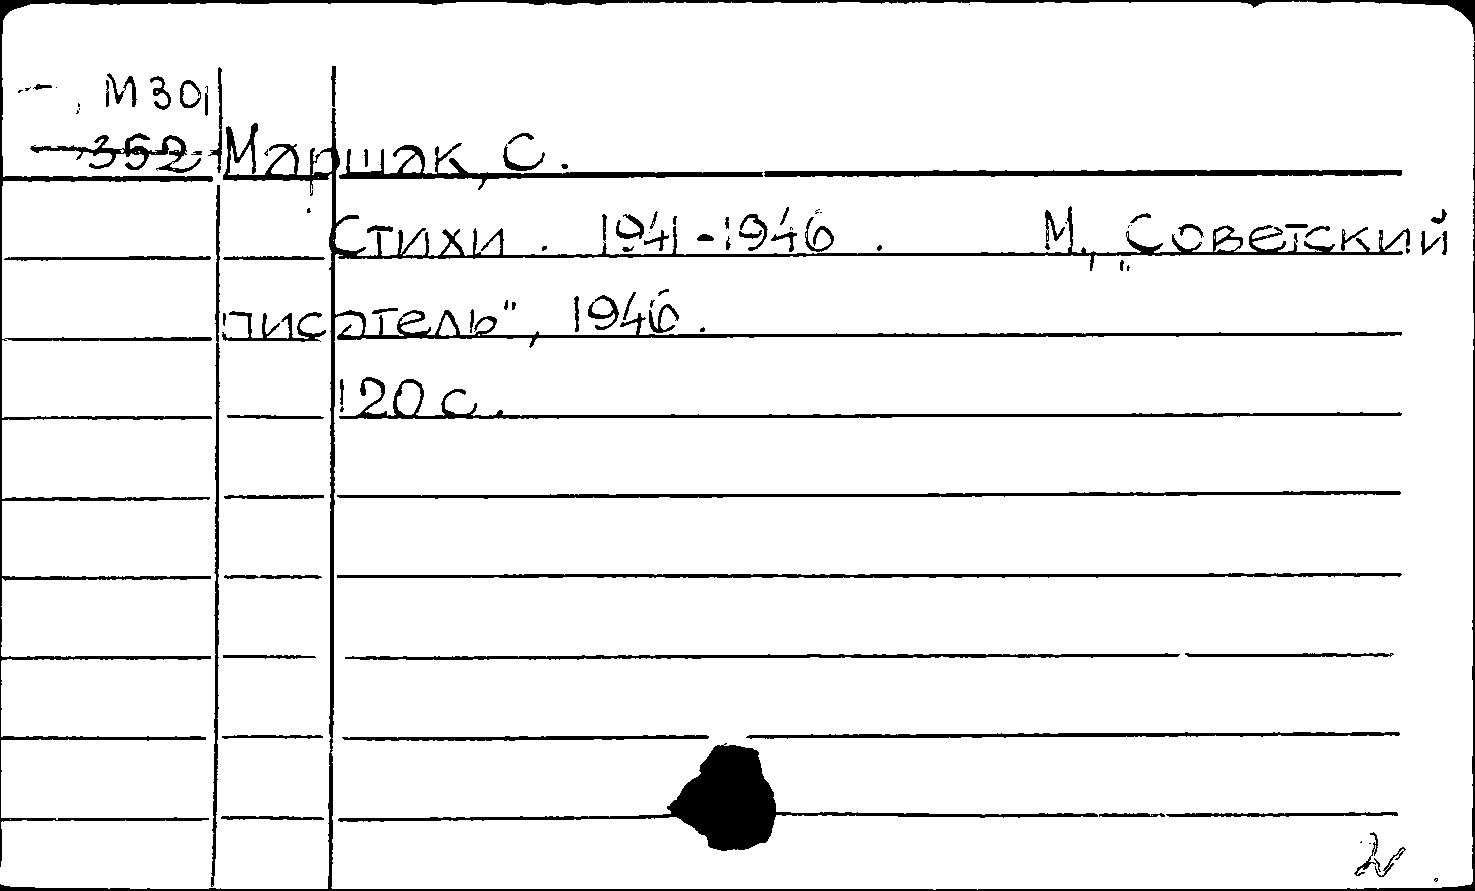 М30
352 Маршак, С.
Стихи. 1941-1946. М., „Советский
писатель", 1946.
120 с.